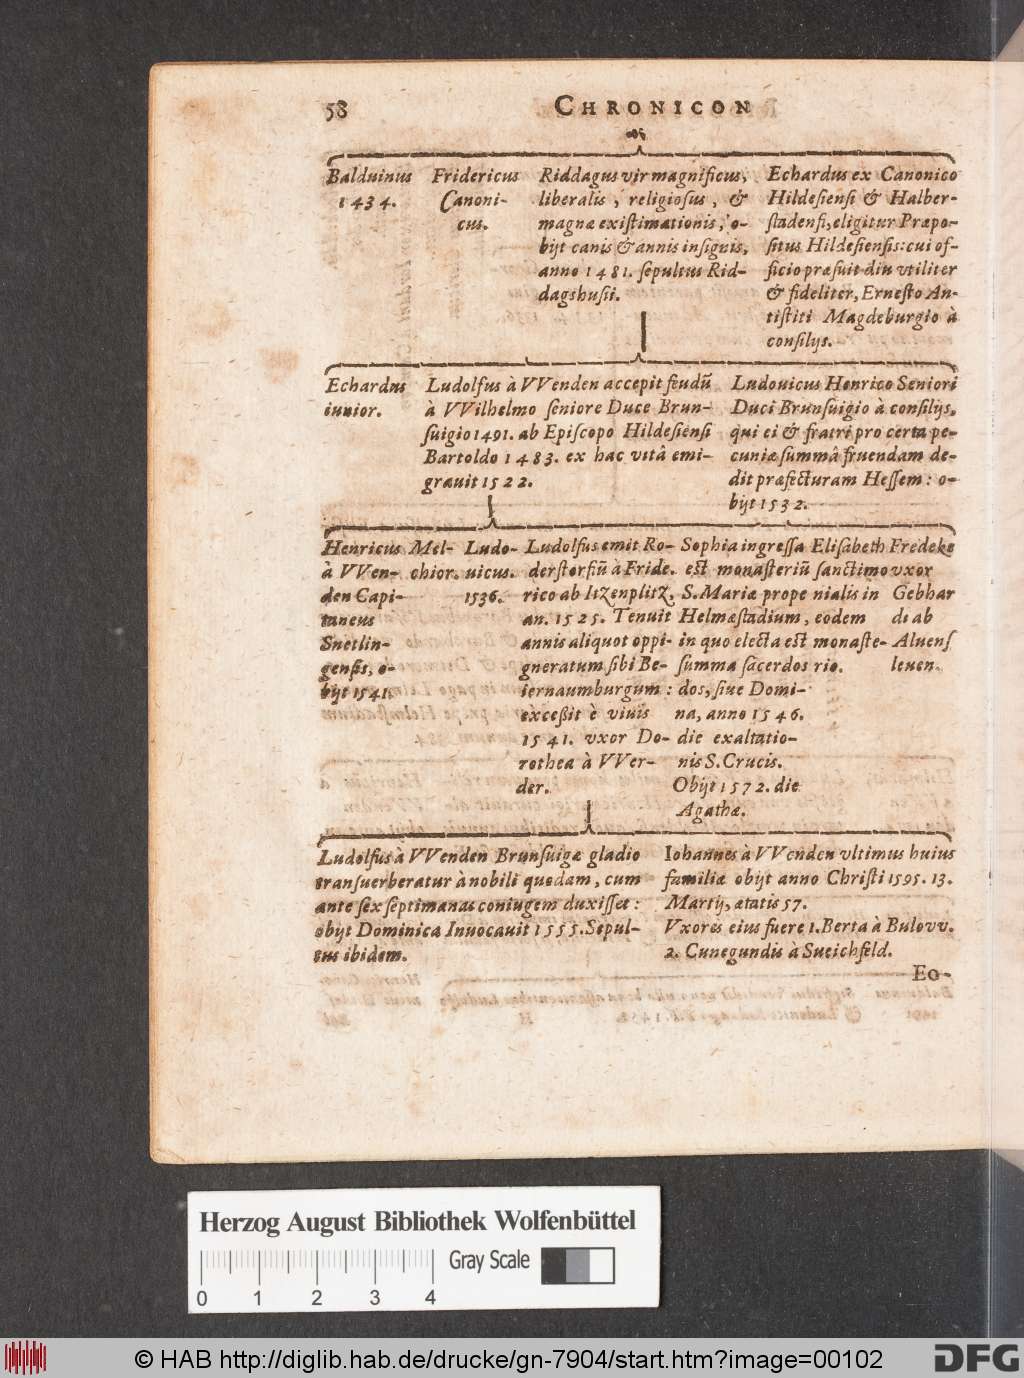 58 CHRONICON
Balduinus
1434.
Fridericus
Canoni-
cus.
Riddagus vir magnificus,
liberalis, religiosus, &
magnæ existimationis, o-
bijt canis & annis insignis,
anno 1481. sepultus Rid-
dagshusii.
Echardus ex Canonico
Hildesiensi & Halber-
stadensi, eligitur Præpo-
situs Hildesiensis: cui of-
ficio præsuit diu vtiliter
& fideliter, Ernesto An-
tistiti Magdeburgio à
consilijs.
Echardus
iunior.
Ludolfus à VVenden accepit feudũ
à VVilhelmo seniore Duce Brun-
suigio 1491. ab Episcopo Hildesiensi
Bartoldo 1483. ex hac vitâ emi-
grauit 1522.
Ludouicus Henrico Seniori
Duci Brunsuigio à consilijs,
qui ei & fratri pro certa pe-
cuniæ summâ fruendam de-
dit præfecturam Hessem: o-
bijt 1532.
Henricus
à VVen-
den Capi-
taneus
Snetlin-
gensis, o-
bijt 1541.
Mel-
chior.
Ludo-
uicus.
1536.
Ludolfus emit Ro-
derstorfiũ à Fride.
rico ab Itzenplitz,
an. 1525. Tenuit
annis aliquot oppi-
gneratum sibi Be-
iernaumburgum:
excessit è viuis
1541. vxor Do-
rothea à VVer-
der.
Sophia ingressa
est monasteriũ
S. Mariæ prope
Helmæstadium,
in quo electa est
summa sacerdos
dos, siue Domi-
na, anno 1546.
die exaltatio-
nis S. Crucis.
Obijt 1572. die
Agathæ.
Elisabeth
sanctimo
nialis in
eodem
monaste-
rio.
Fredeke
vxor
Gebhar
di ab
Aluens
leuen.
Ludolfus à VVenden Brunsuigæ gladio
transuerberatur à nobili quodam, cum
ante sex septimanas coniugem duxisset:
obijt Dominica Inuocauit 1555. Sepul-
tus ibidem.
Iohannes à VVenden vltimus huius
familiæ obijt anno Christi 1595. 13.
Martij, ætatis 57.
Vxores eius fuere 1. Berta à Bulovv.
2. Cunegundis à Sueichfeld.
Eo-
Herzog August Bibliothek Wolfenbüttel
Gray Scale
0 1 2 3 4
© HAB http://diglib.hab.de/drucke/gn-7904/start.htm?image=00102
DFG